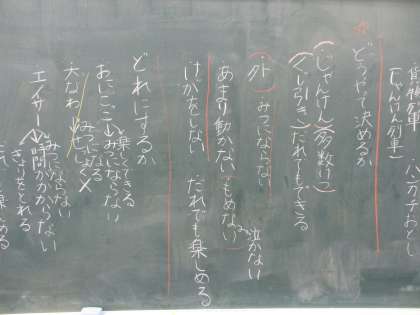 ハンカチおとし
（じゃんけん列車）
どうやって決めるか
（じゃんけん）（多数けつ）
（くじ引き）だれでもできる
外 みつにならない
あまり動かない もめない 泣かない
けがをしない だれでも楽しめる
どれにするか
おにごっこ 楽しくできる
みつにならない
みつになる
大なわ
むずかしい
エイサー みつにならない
時間がかからない
きょりをとれる